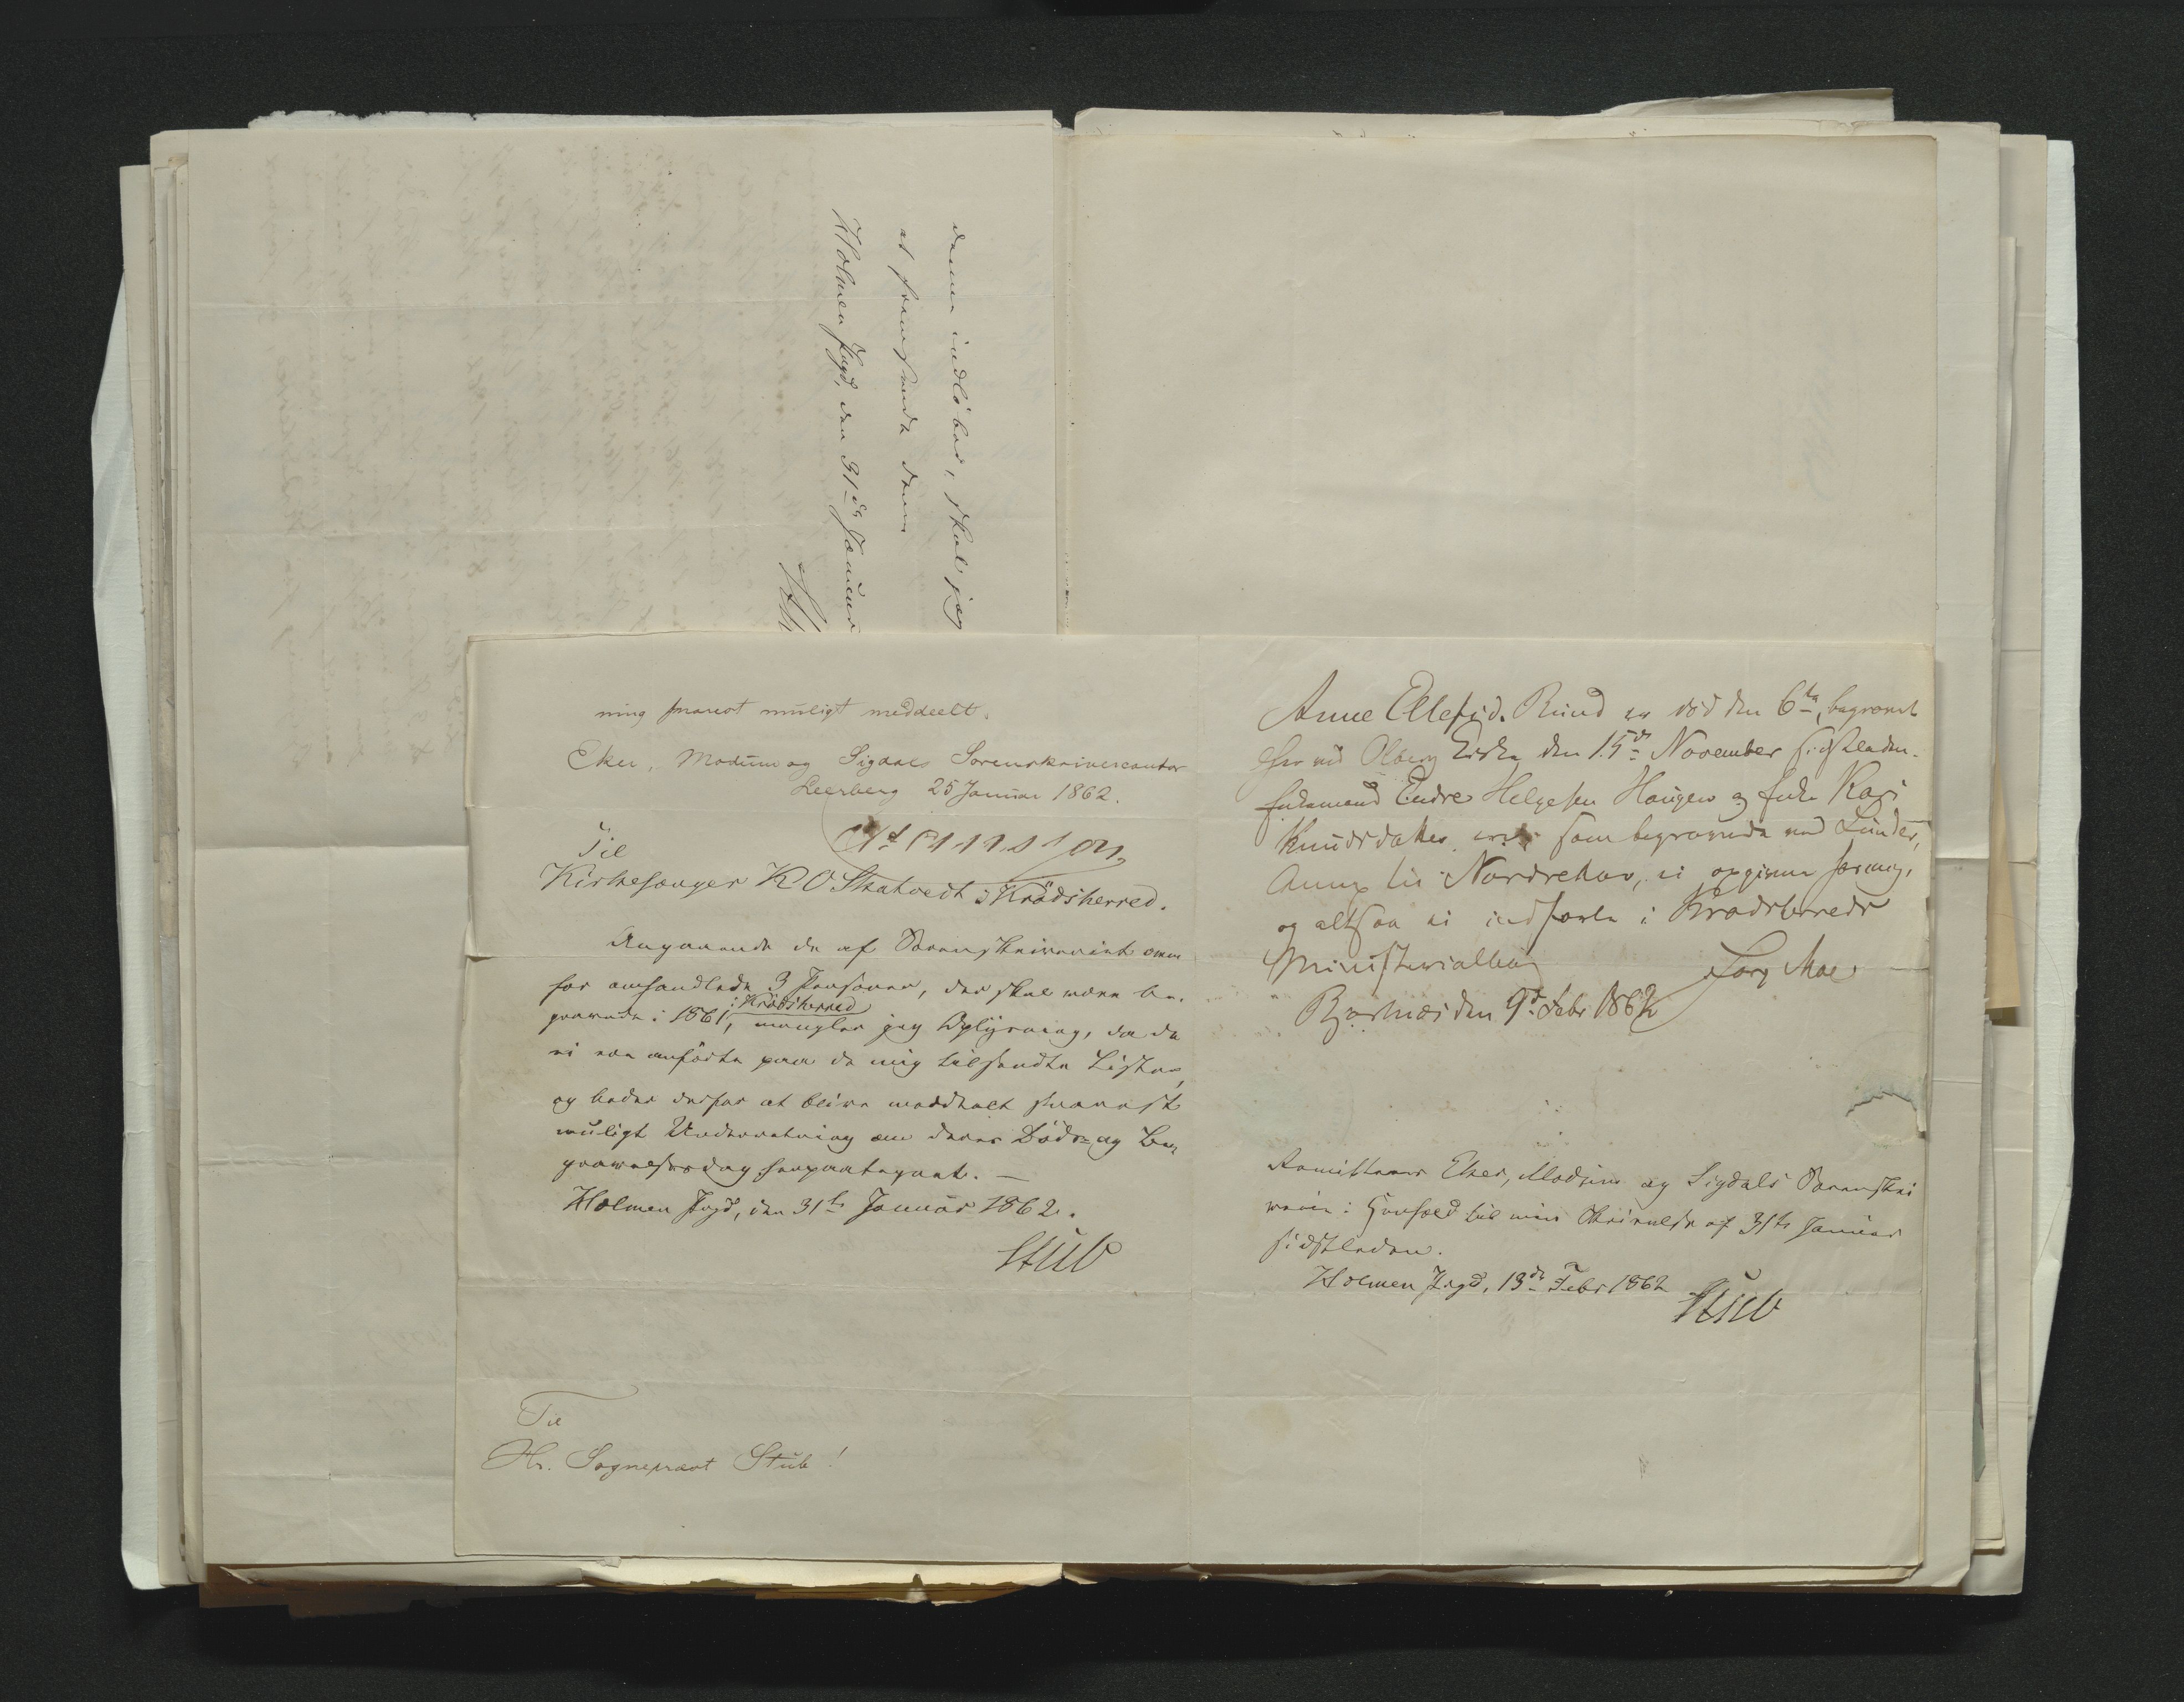 denne indløber, skal jeg
at fremsende dem
Holmen Prgd, den 31te Januar
ning snarest muligt meddeelt.
Eker, Modum og Sigdals Sorenskrivercontor
Leerberg 25 Januar 1862.
Til
Kirkesanger K O Skatvedt i Krødsherred.
Angaaende de af Sorenskriveriet oven
for omhandlede 3 Personer, der skal være be-
gravede i 1861, i Krødsherred mangler jeg Oplysning, da de
ei ere anførte paa de mig tilsendte Lister,
og beder derfor at blive meddeelt snarest
muligt Underretning om deres Døds- og Be-
gravelsesdag herpaategnet. —
Holmen Prgd, den 31te Januar 1862.
Stub
Til
Hr. Sogneprest Stub!
Anne Ellefsd. Rund er død den 6te, begravet
her ved Olberg Kirke den 15de November sidstleden.
Enkemand Endre Helgesen Haugen og Enke Kari
Knudsdatter ere som begravede ved Lunder,
Annex til Norderhov, ei opgivne for mig,
og altsaa ei indførte i Krødsherreds
Ministerialbog
Jørg Moe
Bjørnæs den 9d Febr 1862
Remitteres Eker, Modum og Sigdals Sorenskri
verie i Henhold til min Skrivelse af 31te Januar
sidstleden.
Holmen Prgd, 13de Febr 1862
Stub